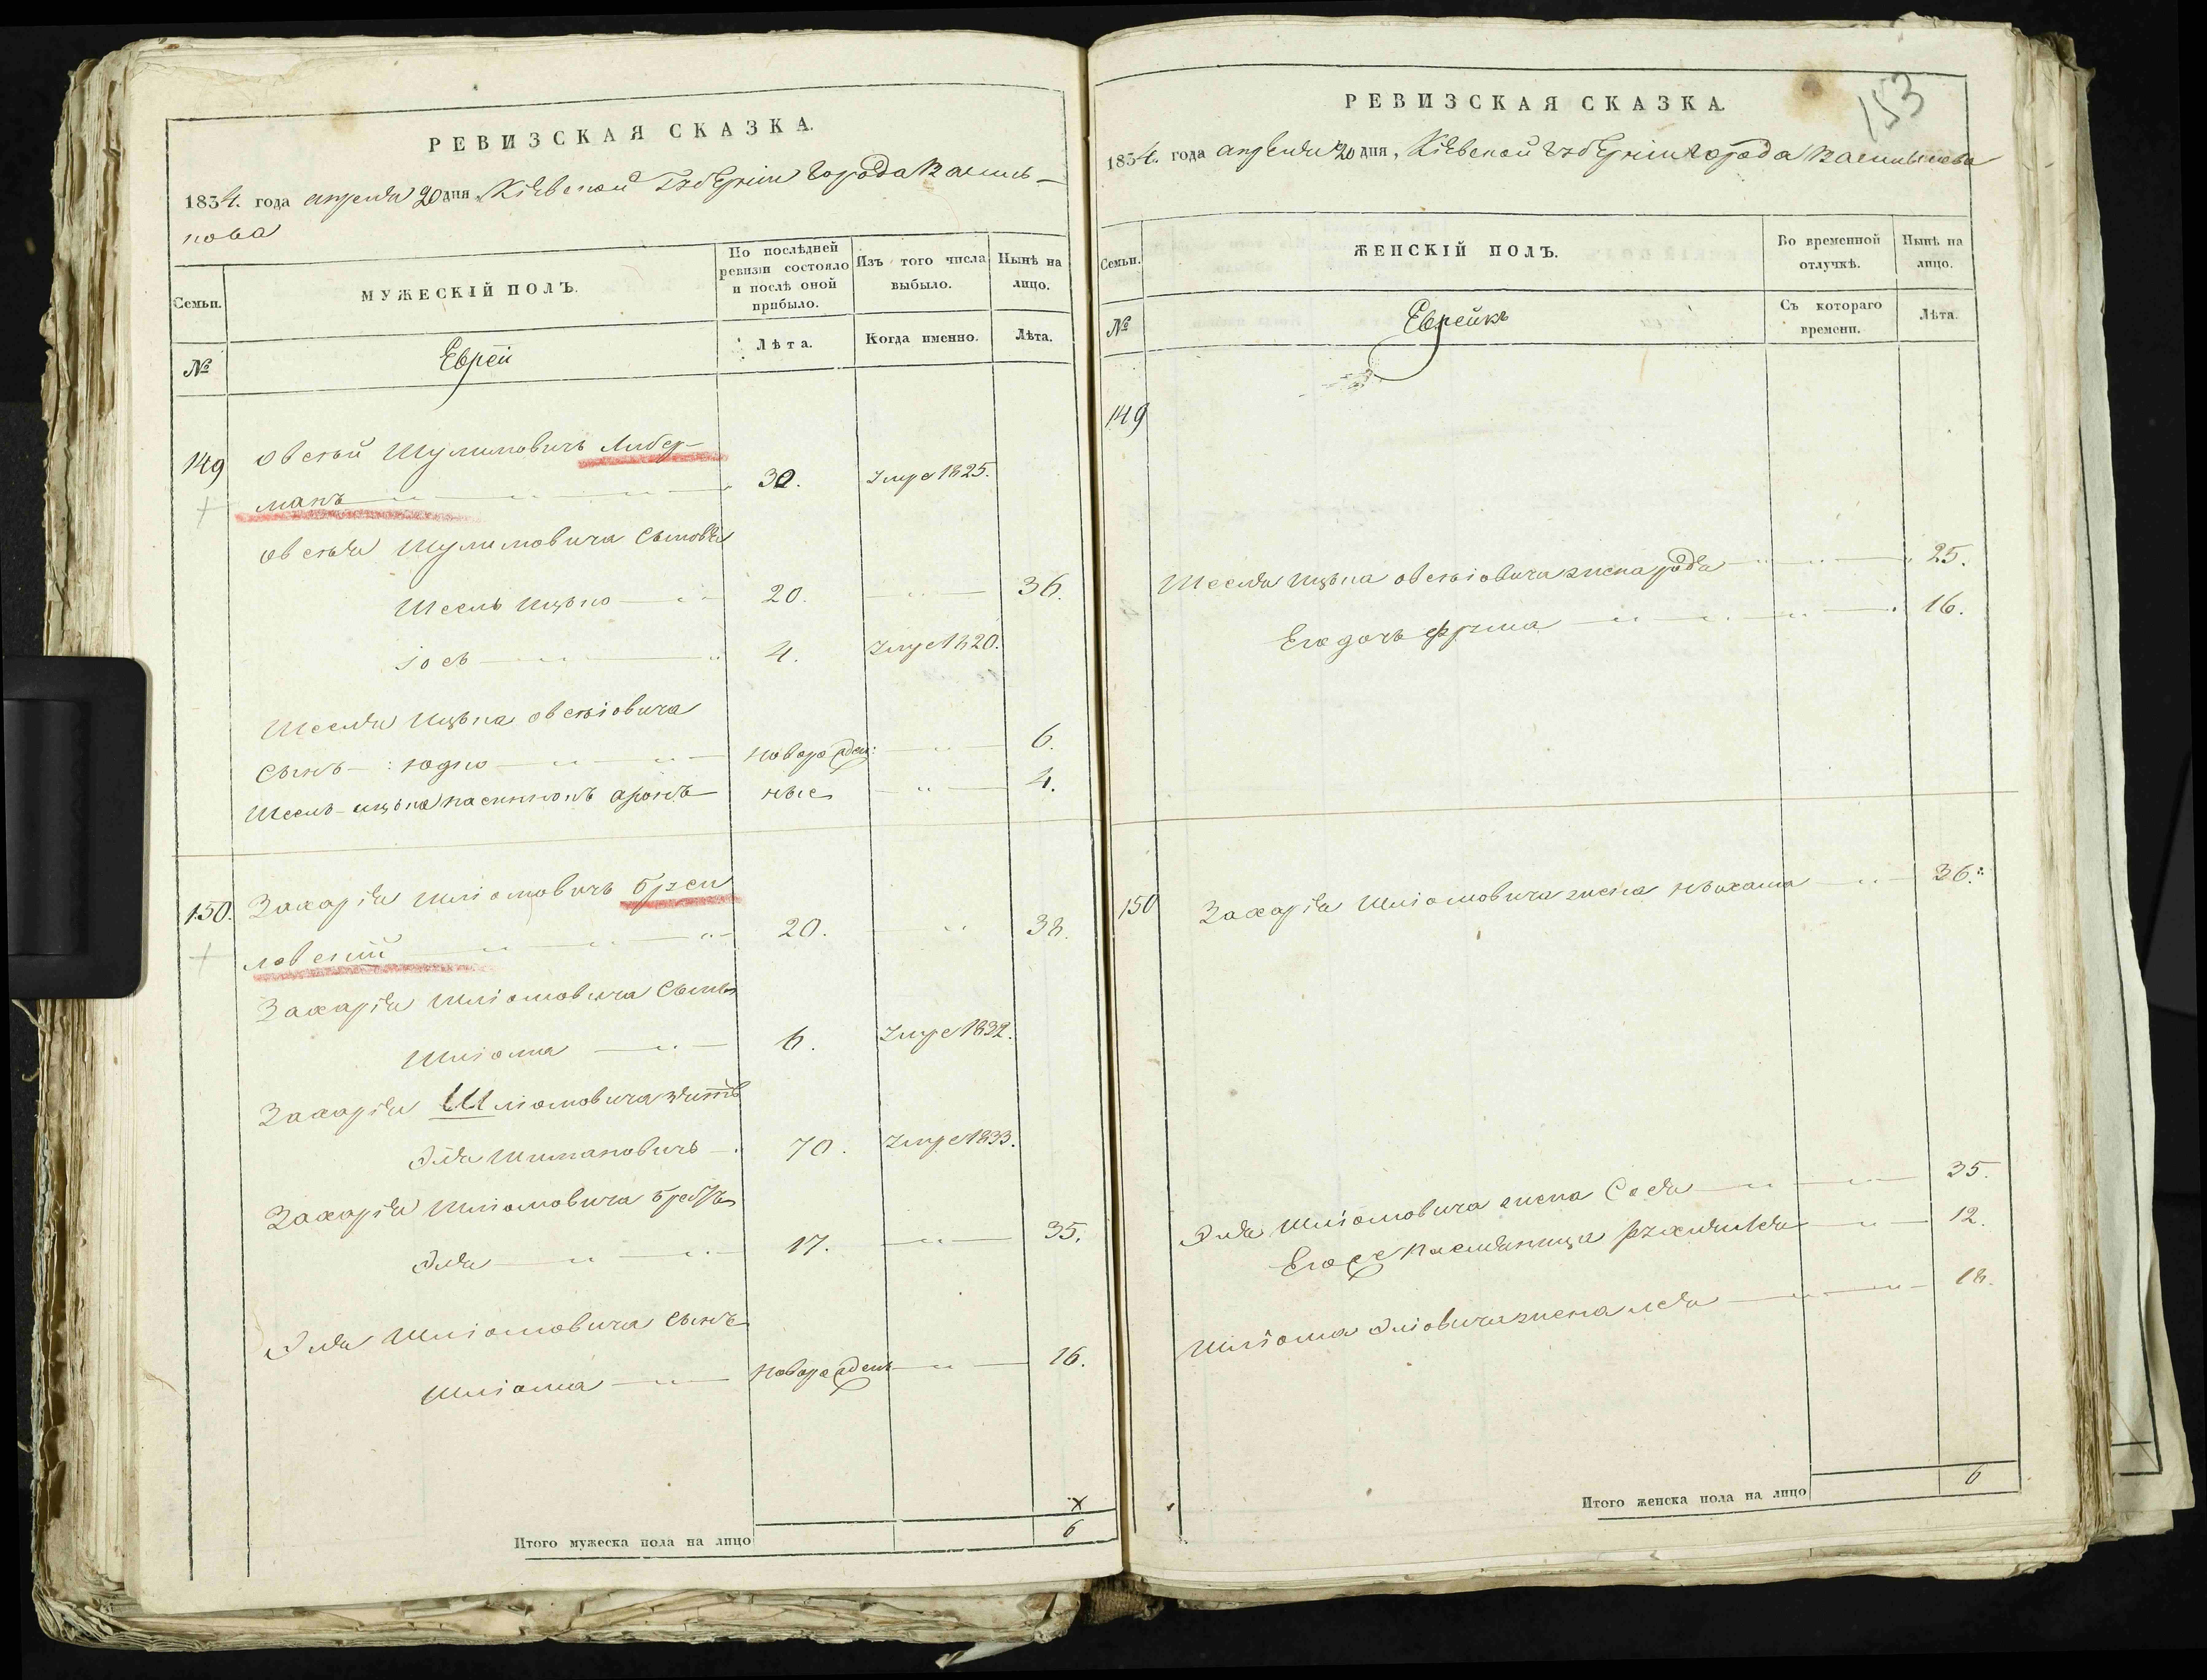 РЕВИЗСКАЯ СКАЗКА.
1834. года апреля 20 дня, Кіевской Губерніи города Василь-
кова
Семьи.
МУЖЕСКІЙ ПОЛЪ.
По послѣдней ревизіи состояло и послѣ оной прибыло.
Изъ того числа выбыло.
Нынѣ на лицо.
№
Еврей
Лѣта.
Когда именно.
Лѣта.
149
Овсѣй Шулимовичъ Либер-
манъ 30. Умре 1825.
Овсѣя Шулимовича сыновья
Шесель Ицько 20. 36.
Іось 4. Умре 1820.
Шесля Ицька Овсѣіовича
сынъ: Юдко новорожден: 6.
Шесль-Ицька пасынокъ Аронъ ные 4.
150.
Захарія Шліомовичъ
20. 38.
Захарія Шліомовича сынъ
Шліома 6. Умре 1832.
Захарія Шліомовича зять
Эля Шимановичъ 70. Умре 1833.
Захарія Шліомовича братъ
Эля 17. 35.
Эля Шліомовича сынъ
Шліома новорожден 16.
Итого мужеска пола на лицо
х
6
РЕВИЗСКАЯ СКАЗКА.
153
1834. года апреля 20 дня, Кіевской Губерніи города Василькова
Семьи.
ЖЕНСКІЙ ПОЛЪ.
Во временной отлучкѣ.
Нынѣ на лицо.
№
Еврейкъ
Съ котораго времени.
Лѣта.
149
Шесля Ицька Овсѣіовича жена 25.
Его дочь Фрума 16.
150
Захарія Шліомовича жена 36.
Эля Шліомовича жена Сося 35.
Его же 12.
Шліома Эліовича жена Лея 18.
Итого женска пола на лицо
6